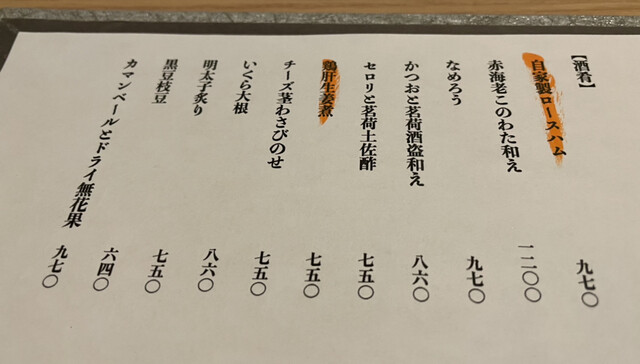 【酒肴】
自家製ロースハム 九七〇
赤海老このわた和え 一二〇〇
なめろう 九七〇
かつおと茗荷酒盗和え 八六〇
セロリと茗荷土佐酢 七五〇
鶏肝生姜煮 七五〇
チーズ茎わさびのせ 七五〇
いくら大根 八六〇
明太子炙り 七五〇
黒豆枝豆 六四〇
カマンベールとドライ無花果 九七〇